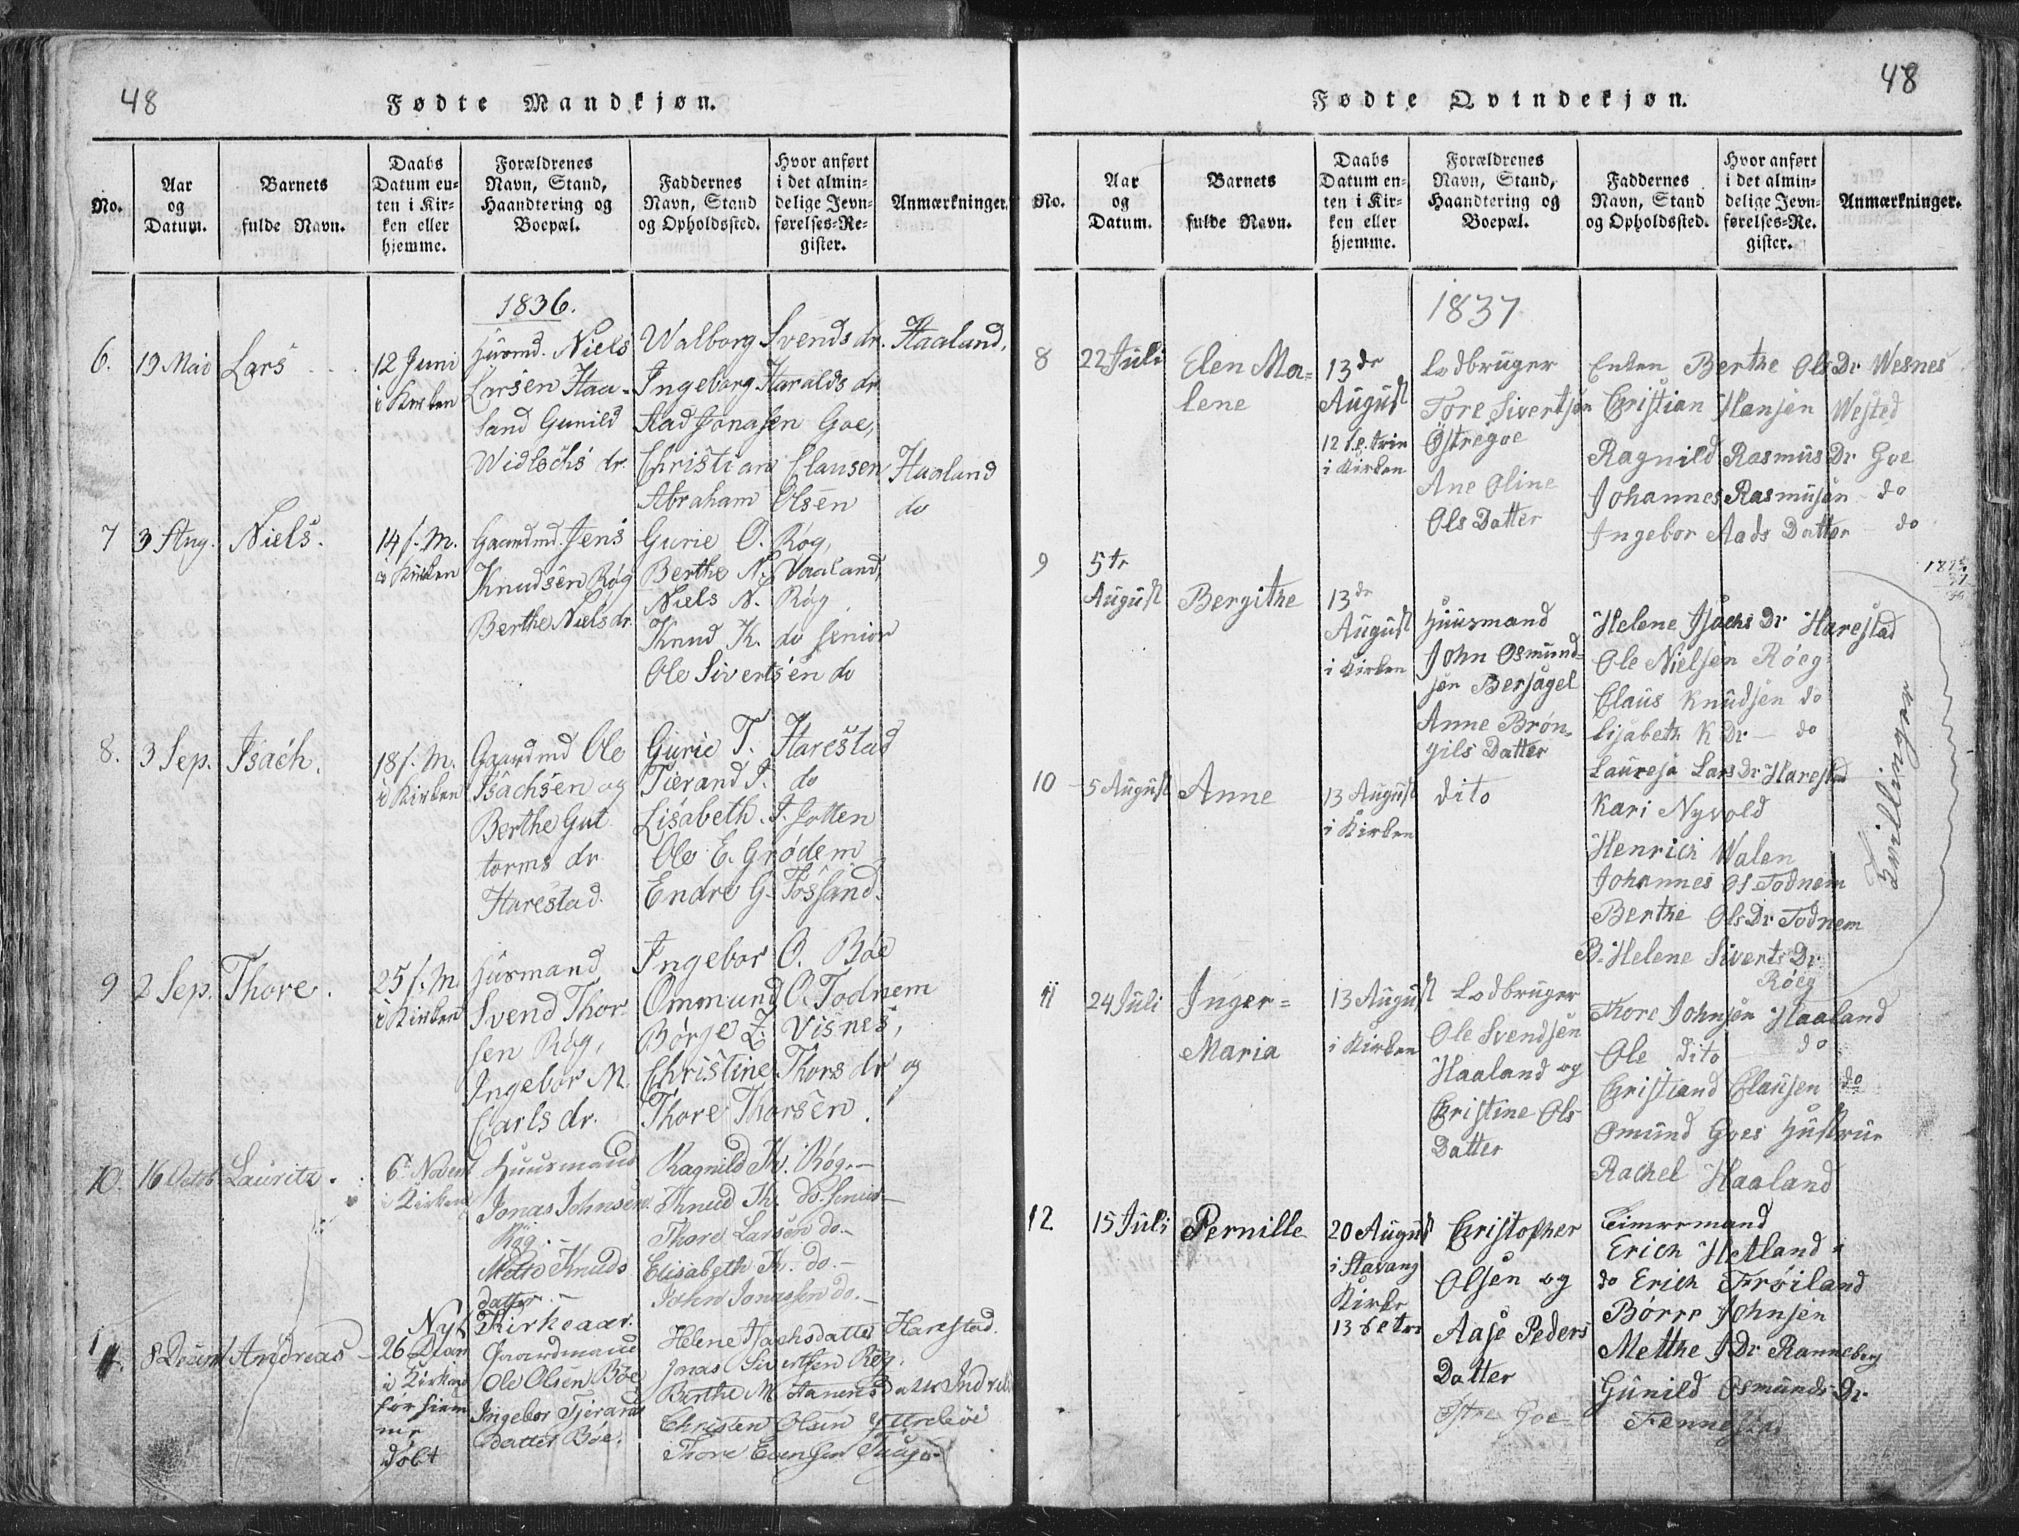 48
Fødte Mandkjøn.
No.
Aar
og
Datum.
Barnets
fulde Navn.
Daabs
Datum en-
ten i Kir-
ken eller
hjemme.
Forældrenes
Navn, Stand,
Haandtering og
Boepæl.
Faddernes
Navn, Stand
og Opholdssted.
Hvor anført
i det almin-
delige Jevn-
førelses-Re-
gister.
Anmærkninger.
1836.
6.
19 Mai
Lars
12 Juni
i Kirken
Huusmd. Niels
Larsen Haa-
land Gunild
Walborg Svends dr. Haaland.
Ingeborg Haralds dr
Aad Jonassen Goe,
Christian Clausen Haaland
Abraham Olsen do
7
3 Aug.
Niels.
14 f. M.
i Kirken
Gaardmd. Jens
Knudsen Røg
Berthe Niels dr.
Gurie O. Røg,
Berthe N. Vaaland,
Niels N. Røg
Knud K. do senior
Ole Sivertsen do
8.
3 Sep.
Isach.
18 f. M.
i Kirken
Gaardmd Ole
Isachsen og
Berthe Gut
torms dr.
Harestad.
Gurie T. Harestad
Tierand I. do
Lisabeth. I. Jotten
Ole E. Grødem
Endre G.
9
2 Sep.
Thore.
25 f. M.
i Kirken
Husmand
Svend Thor-
sen Røg,
Ingebor M.
Carls dr.
Ingebor O. Bøe
Ommund O. Todnem
Børge Z. Visnes,
Christine Thors dr og
Thore Thorsen.
10.
16 Octob
Lauritz.
6te Novem
i Kirken
Huusmand
Jonas Johnsen
Røg.
Mette Knuds
datter.
Ragnild Th. Røg.
Knud Th. do. senior
Thore Larsen do.
Elisabeth K. do.
John Jonassen do.
Nyt Kirkeaar.
11.
8 Decem
Andreas
26 Dec
i Kirken
før hiem
me
døbt
Gaardmand
Ole Olsen Bøe
Ingebor Tjerands
datter Bøe.
Helene Isachsdatter Harestad.
Jonas Sivertsen Røg.
Christen Olsen
Thore Evensen
48
Fødte Qvindekjøn.
No.
Aar
og
Datum.
Barnets
fulde Navn.
Daabs
Datum en-
ten i Kir-
ken eller
hjemme.
Forældrenes
Navn, Stand,
Haandtering og
Boepæl.
Faddernes
Navn, Stand
og Opholdssted.
Hvor anført
i det almin-
delige Jevn-
førelses-Re-
gister.
Anmærkninger.
1837
8
22 Juli
Elen Ma-
lene
13de
August
12 S. e. trin
i Kirken
Lodbruger
Tore Sivertsen
Østregoe
Ane Oline
Ols Datter
Enken Berthe Ols Dr Wesnes
Christian Hansen Wested
Ragnild Rasmus Dr Goe
Johannes Rasmusen do
Ingebor Aads Datter do
9
5te
August
Bergithe
13de
August
i Kirken
Huusmand
John Osmund-
sen Bersagel
Anne Brøn-
gils Datter
Helene Isachs Dr Harestad
Ole Nielsen Røeg
Claus Knudsen do
Lisabeth K Dr - do
Lauresa Lars Dr Harestad
10
5 August
Anne
13 August
i Kirken
dito
Kari Nyvold
Henrich Walen
Johannes Ols Todnem
Berthe Ols Dr Todnem
B. Helene Siverts Dr
Røeg
Tvillinger
11
24 Juli
Inger-
Maria
13 August
i Kirken
Lodbruger
Ole Svendsen
Haaland og
Christine Ols
Datter
Thore Johnsen Haaland
Ole dito do
Christiand Clausen do
Osmund Goes Hustrue
Rachel Haaland
12
15 Juli
Pernille
20 August
i Stavang
Kirke
Christopher
Olsen og
Aase Peders
Datter
Østre Goe
Timmermand
Erich Hetland
do Erich Frøiland
Borre Johnsen
Metthe J Dr Ranneberg
Gunild Osmunds Dr
Fennestad